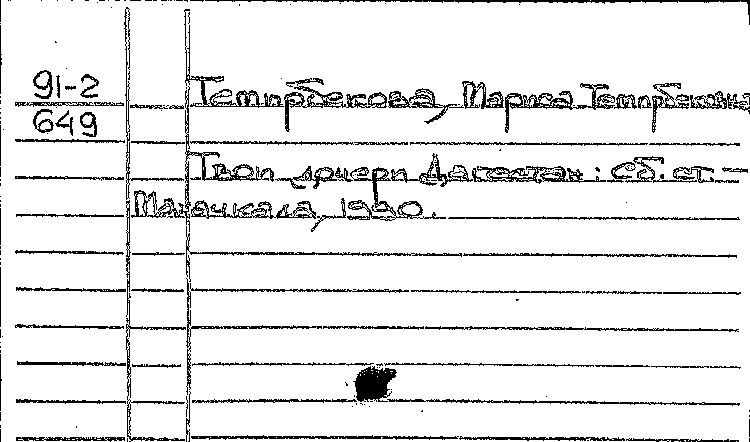 91-2
649
Темирбекова, Мариса Темирбековна
Твои дочери Дагестан : Сб. ст. —
Махачкала, 1990.